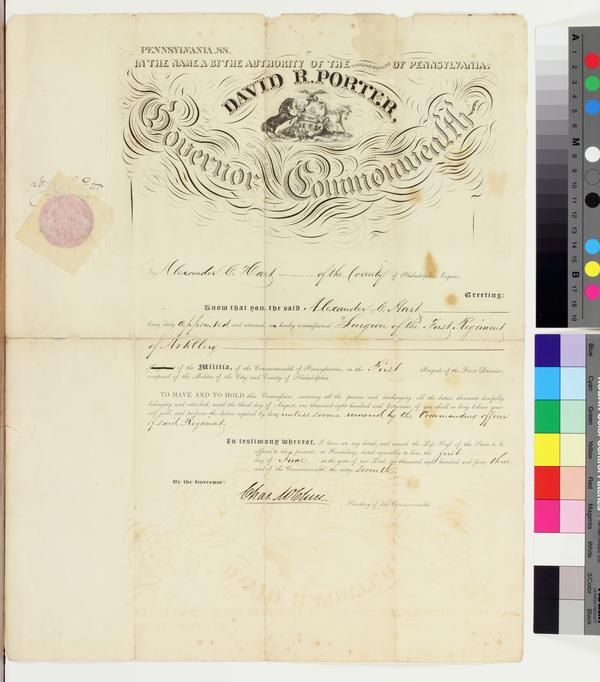 PENNSYLVANIA, SS.
IN THE NAME & BY THE AUTHORITY OF THE COMMONWEALTH OF PENNSYLVANIA.
DAVID R. PORTER,
Governor OF THE Commonwealth
To Alexander C. Hart of the County of Philadelphia, Esquire
Greeting:
Know that you, the said Alexander C. Hart
being duly appointed and returned, are hereby commissioned Surgeon of the First Regiment
of Artillery
of the Militia, of the Commonwealth of Pennsylvania, in the First Brigade of the First Division,
composed of the Militia of the City and County of Philadelphia.
TO HAVE AND TO HOLD this Commission, exercising all the powers and discharging all the duties thereunto lawfully
belonging and attached, until the third day of August, one thousand eight hundred and forty-nine, if you shall so long behave your-
self well, and perform the duties required by law, unless sooner removed by the Commanding officer
of said Regiment.
In testimony whereof, I have set my hand, and caused the Less Seal of the State to be
affixed to these presents, at Harrisburg, dated agreeably to law, the first
day of June in the year of our Lord, one thousand eight hundred and forty three
and of the Commonwealth, the sixty seventh.
By the Governor:
Chas. McClure
Secretary of the Commonwealth.
A 1 2 3 4 5 6 M 8 9 10 11 12 13 14 15 B 17 18 19
Blue
Cyan
Green
Yellow
Red
Magenta
White
3/Color
Black